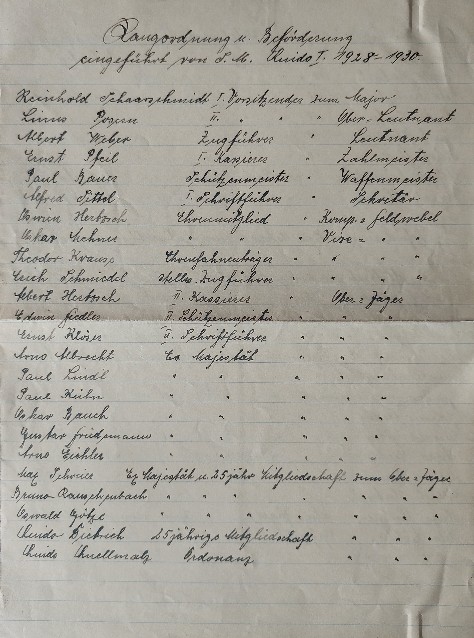 Rangordnung u. Beförderung
eingeführt von S. M. Guido I. 1928-1930.
Reinhold Schaarschmidt I. Vorsitzender zum Major
Linus II. " " Ober-Leutnant
Albert Weber Zugführer " Leutnant
Ernst Pfeil I. Kassierer " Zahlmeister
Paul Bauer Schützenmeister " Waffenmeister
Alfred Tittel I. Schriftführer " Sekretär
Oswin Hertzsch Ehrenmitglied " Komp.=feldwebel
Oskar " " Vize = "
Theodor Krauss Ehrenfahnenträger " " "
Erich Schmiedel stellv. Zugführer " " "
Albert Hertzsch II. Kassierer " Ober=Jäger
Edwin Fiedler II. Schützenmeister " " "
Ernst Klöser II. Schriftführer " " "
Arno Albrecht Ex Majestät " " "
Paul Lindl " " " " "
Paul Kühn " " " " "
Oskar Bauch " " " " "
Gustav Friedemann " " " " "
Arno Eichler " " " " "
Max Ex Majestät u. 25 jähr Mitgliedschaft zum Ober=Jäger
Bruno Rauschenbach " " " " " " " "
Oswald Götze " " " " " " " "
Guido Dietrich 25 jährige Mitgliedschaft " " "
Guido Quellmalz Ordonanz " " "